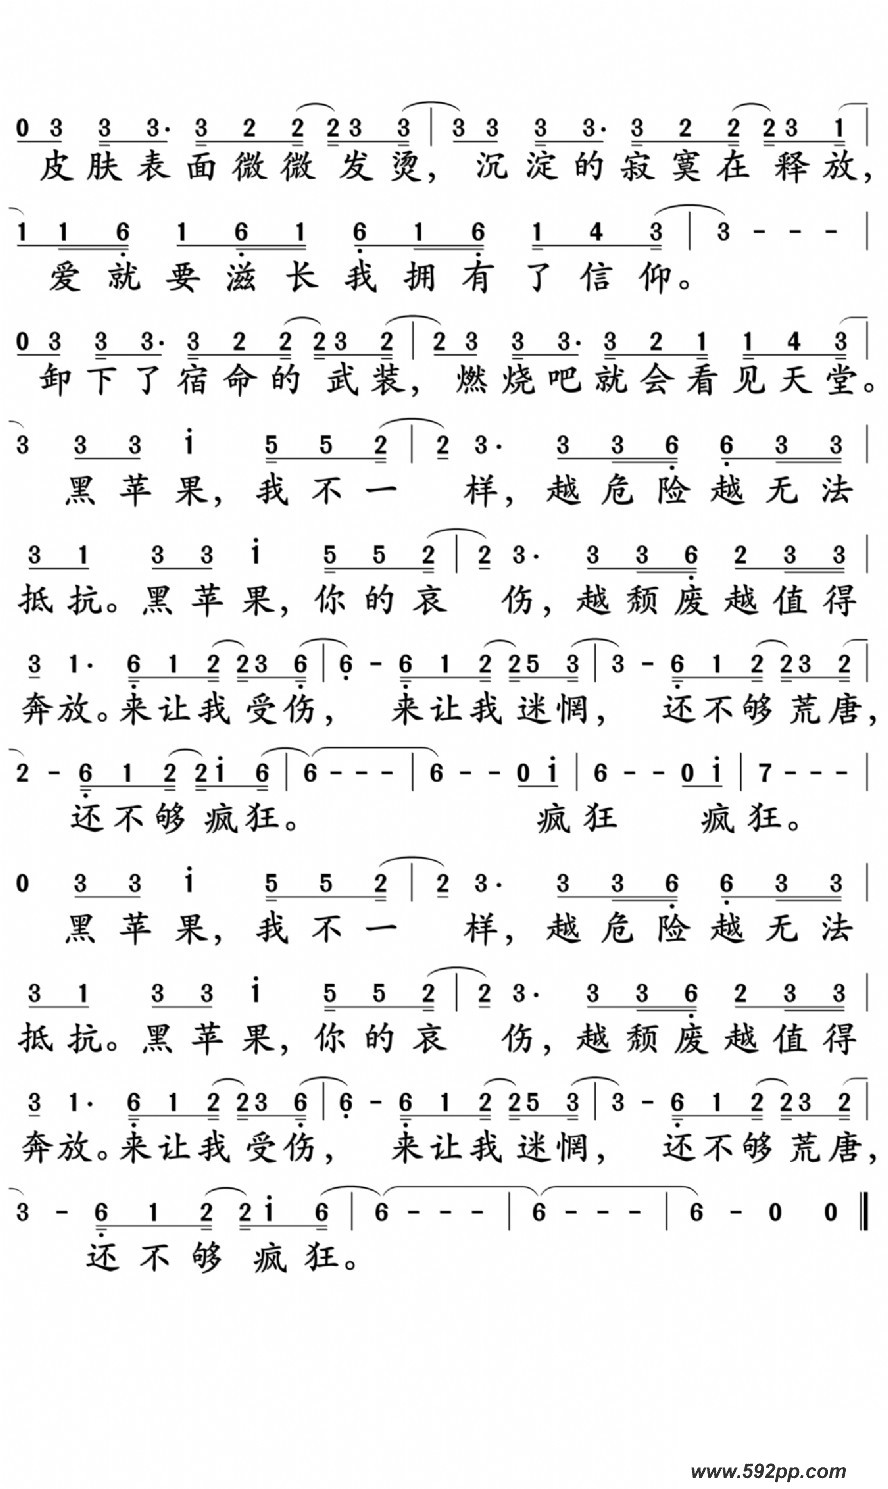 0 3 3 3· 3 2 2 2 3 3 | 3 3 3 3· 3 2 2 2 3 1 |
皮肤表面微微发烫，沉淀的寂寞在释放，
1 1 6 1 6 1 6 1 6 1 4 3 | 3 - - - |
爱就要滋长我拥有了信仰。
0 3 3 3· 3 2 2 2 3 2 | 2 3 3 3· 3 2 1 1 4 3 |
卸下了宿命的武装，燃烧吧就会看见天堂。
3 3 3 i 5 5 2 | 2 3· 3 3 6 6 3 3 |
黑苹果，我不一样，越危险越无法
3 1 3 3 i 5 5 2 | 2 3· 3 3 6 2 3 3 |
抵抗。黑苹果，你的哀伤，越颓废越值得
3 1· 6 1 2 2 3 6 | 6 - 6 1 2 2 5 3 | 3 - 6 1 2 2 3 2 |
奔放。来让我受伤，来让我迷惘，还不够荒唐，
2 - 6 1 2 2 i 6 | 6 - - - | 6 - - 0 i | 6 - - 0 i | 7 - - - |
还不够疯狂。疯狂疯狂。
0 3 3 i 5 5 2 | 2 3· 3 3 6 6 3 3 |
黑苹果，我不一样，越危险越无法
3 1 3 3 i 5 5 2 | 2 3· 3 3 6 2 3 3 |
抵抗。黑苹果，你的哀伤，越颓废越值得
3 1· 6 1 2 2 3 6 | 6 - 6 1 2 2 5 3 | 3 - 6 1 2 2 3 2 |
奔放。来让我受伤，来让我迷惘，还不够荒唐，
3 - 6 1 2 2 i 6 | 6 - - - | 6 - - - | 6 - 0 0 ‖
还不够疯狂。
www.592pp.com